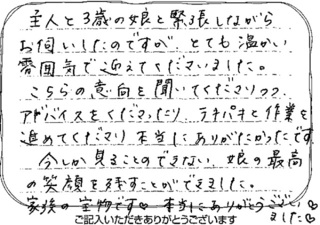 主人と3歳の娘と緊張しながら
お伺いしたのですが、とても温かい
雰囲気で迎えてくださいました。
こちらの意向を聞いてくださりつつ
アドバイスをくださったり、テキパキと作業を
進めてくださり本当にありがたかったです
今しか見ることのできない、娘の最高
の笑顔を残すことができました。
家族の宝物です♡ 本当にありがとうござい
ました♡
ご記入いただきありがとうございます